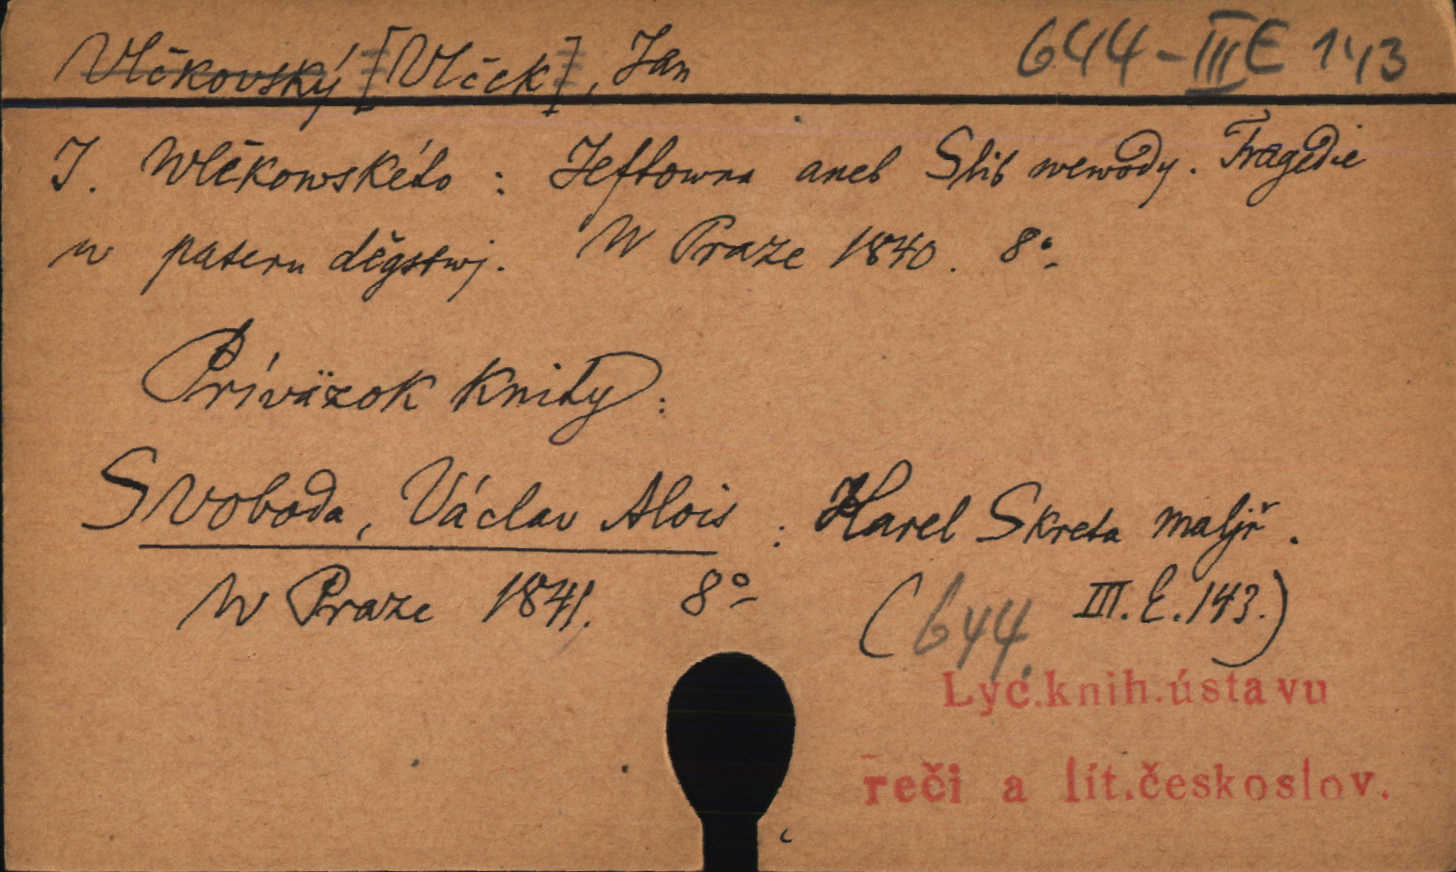 Vlčkovský [Vlček], Jan 644-III E 143
J. Wlčkowského: Jeftowna aneb Slib wewody. Tragedie
w pateru děgstwj. W Praze 1840. 8°
Príväzok knihy:
Svoboda, Václav Alois: Karel Skreta maljř.
W Praze 1841. 8° (644. III. E. 143.)
Lyc.knih.ústavu
reči a lít.českoslov.